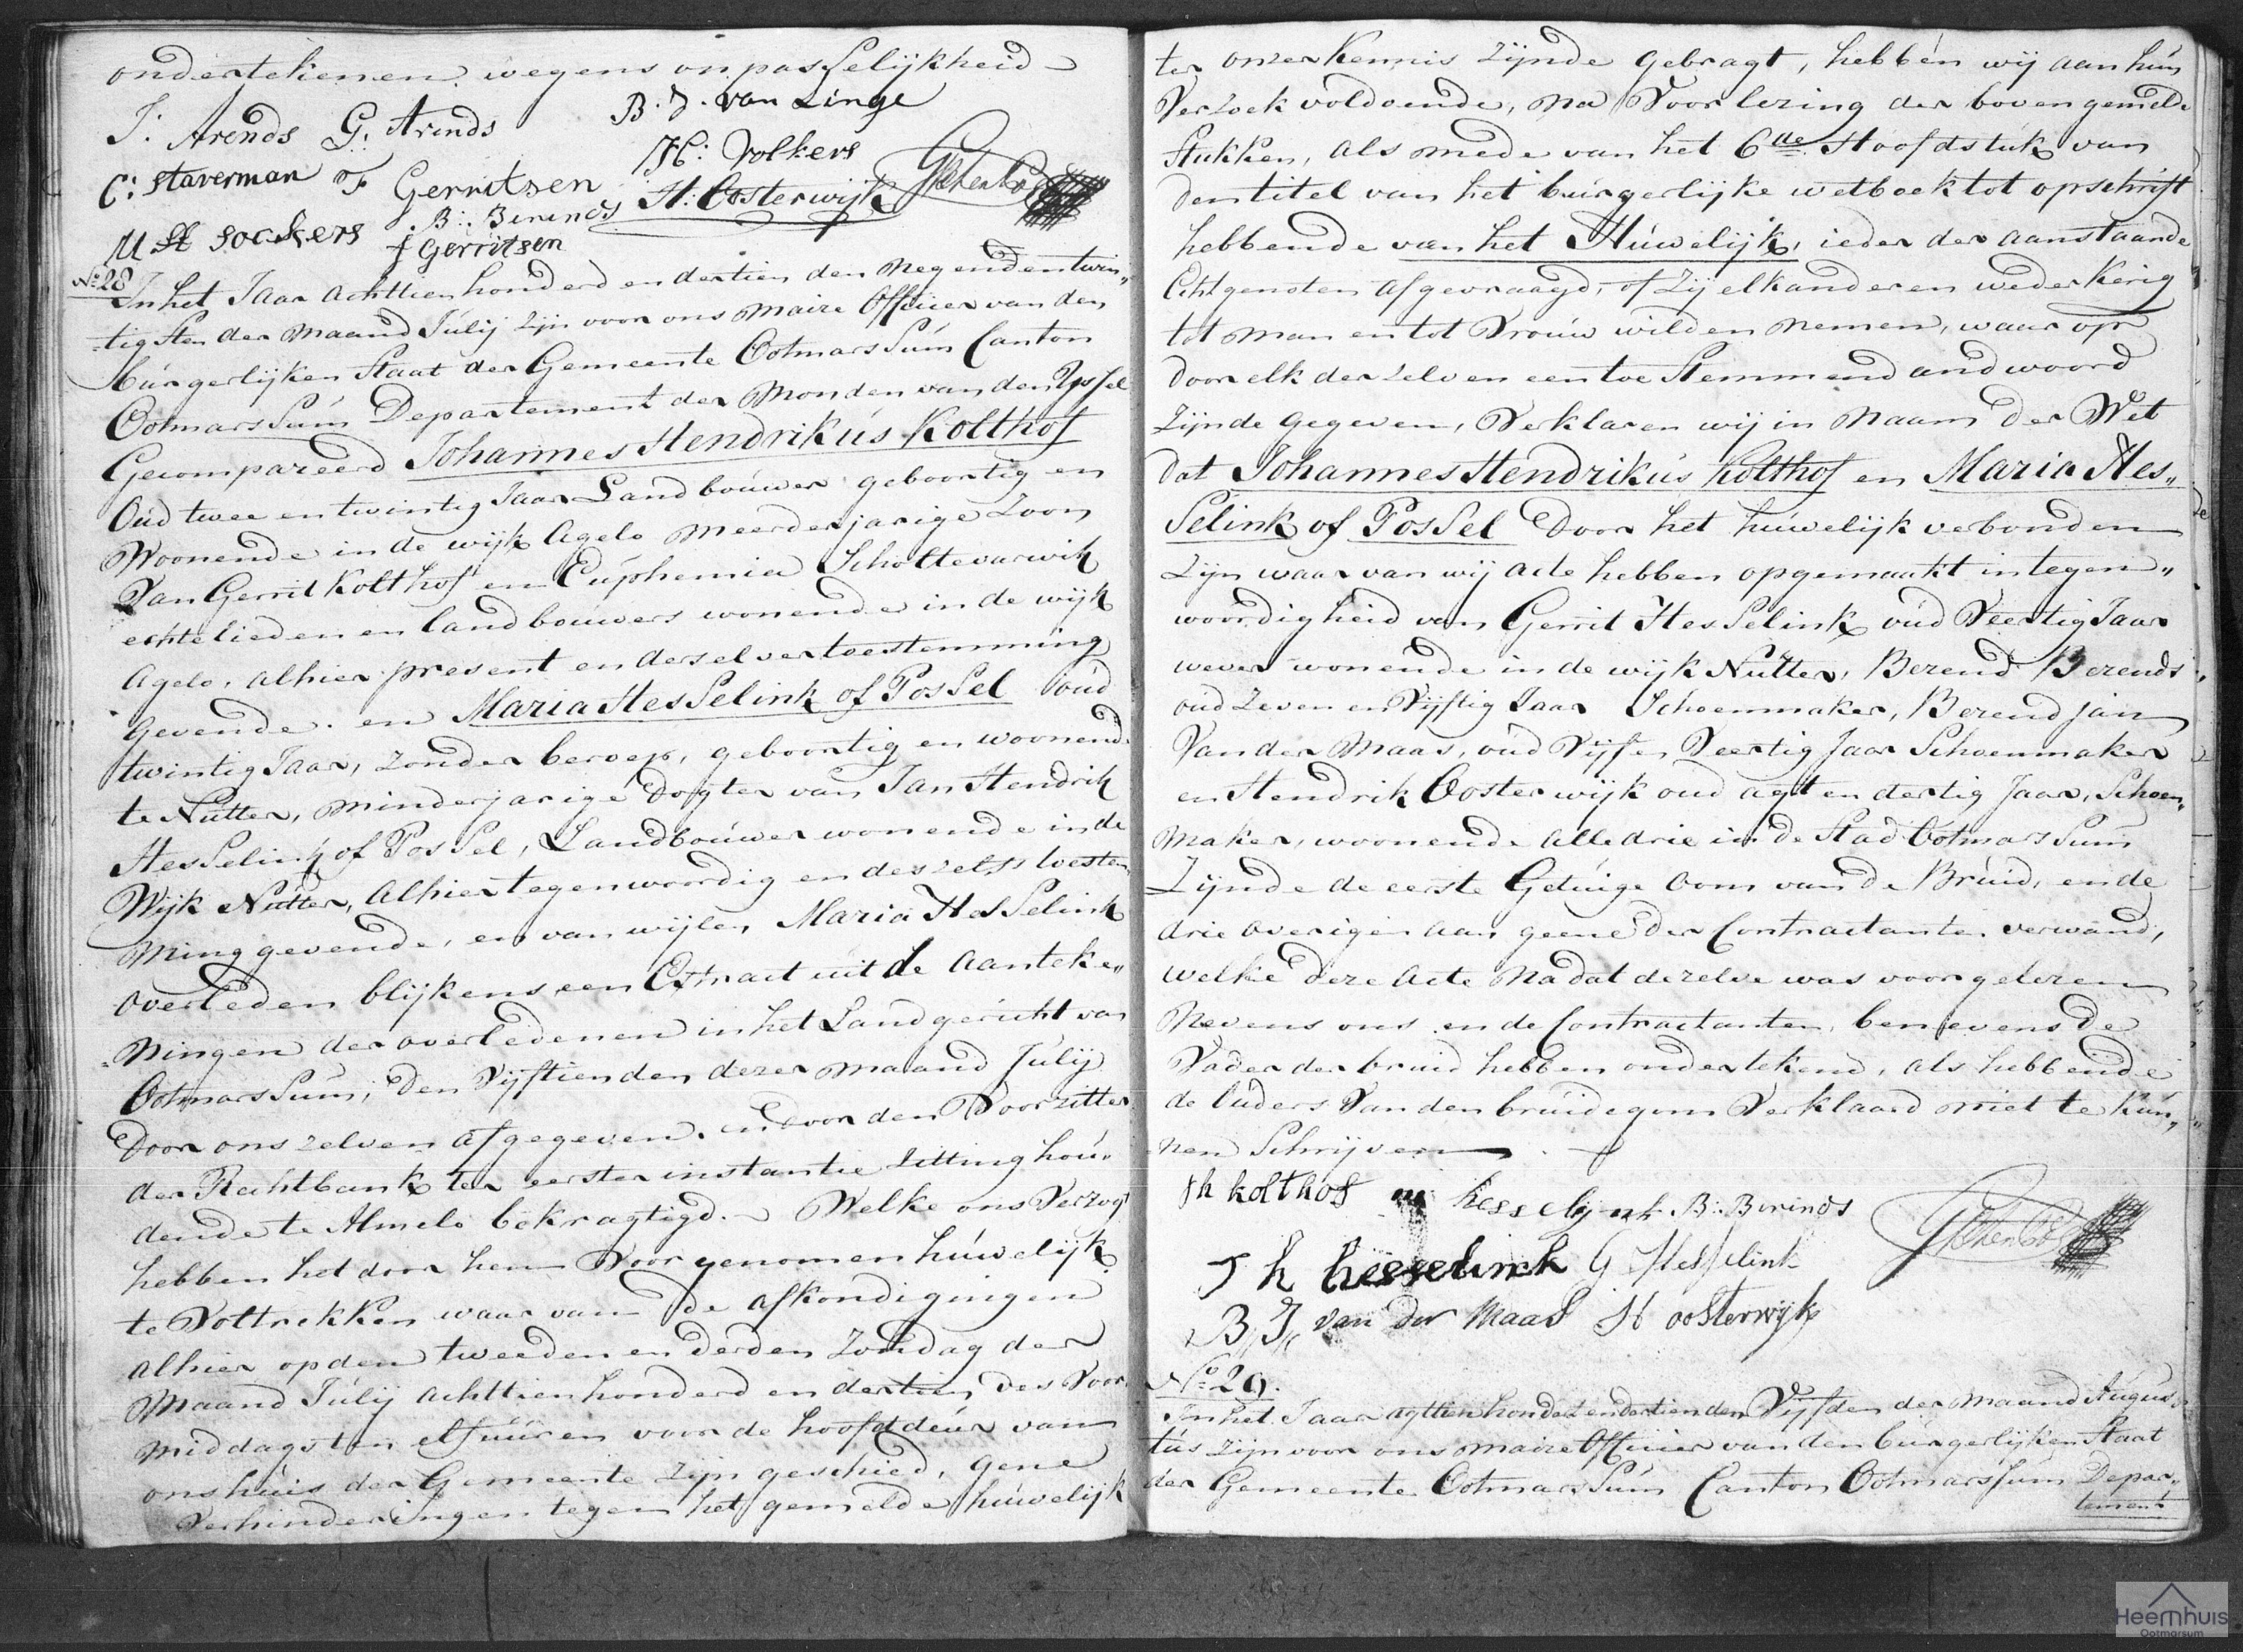 ondertekenen wegens onpasselijkheid
J: Arends G. Arends B. J. van Linge
C: Staverman F Gerritsen H: Volkers
H: Oosterwijk
B: Berends
M H Sockers f Gerritsen
No: 28
In het Jaar achttienhonderd en dertien den Negen den twin„
-tigsten der Maand Julij zijn voor ons Maire Officier van den
burgerlijken Staat der Gemeente OotmarsSum Canton
OotmarsSum Departement der Monden van den YsSel
Gecompareerd Johannes Hendrikus Kolthof
Oud twee en twintig Jaar Landbouwer geboortig en
Woonende in de wijk Agelo meerderjarige Zoon
Van Gerrit Kolthof en Euphemia Scholtevarwik
echtelieden en landbouwers wonende in de wijk
Agelo, alhier present en derselver toestemming
gevende. en Maria HesSelink of PosSel oud
twintig Jaar, Zonder beroep, geboortig en woonend
te Nutter, minderjarige Dogter van Jan Hendrik
HesSelink of PosSel, Landbouwer wonende in de
Wijk Nutter, alhier tegenwoordig en deszelfs toestem
ming gevende, en van wijlen Maria HesSelink
overleden blijkens een Extract uit de aanteke„
-ningen der overledenen in het Landgericht van
OotmarsSum, den Vijftienden dezer maand Julij
Door ons zelven afgegeven. en door den Voorzitter
der Rechtbank ter eerster instantie zitting hou„
dende te Almelo bekragtigd. Welke ons Verzogt
hebben het door hen Voorgenomen huwelijk
te Voltrekken waar van de afkondigingen
alhier op den tweeden en derden Zondag der
Maand Julij achttienhonderd en dertien, des Voor
middags ten elf uuren voor de hoofddeur van
ons huis der Gemeente zijn geschied, gene
verhinderingen tegen het gemelde huwelijk
ter onzer Kennis zijnde gebragt, hebben wij aan hun
Verzoek voldoende, na Voorlezing der boven gemelde
Stukken, als mede van het 6de Hoofdstuk van
den titel van het burgerlijke wetboek tot opschrift
hebbende van het Huwelijk, ieder der aanstaande
Echtgenoten afgevraagd, of Zij elkanderen wederkerig
tot man en tot Vrouw wilden nemen, waar op
door elk der zelven een toe Stemmend andwoord
Zijnde gegeven, Verklaren wij in Naam der Wet
dat Johannes Hendrikus Kolthof en Maria Hes„
Selink of PosSel Door het huwelijk verbonden
Zijn waar van wij acte hebben opgemaakt in tegen„
woordigheid van Gerrit HesSelink oud Veertig Jaar
wever wonende in de wijk Nutter, Berend Berends
oud Zeven en Vijftig Jaar Schoenmaker, Berend jan
Van der Maas, oud Vijf en Veertig Jaar Schoenmaker
en Hendrik Oosterwijk oud agt en dertig Jaar, Schoen„
maker, woonende alle drie in de Stad OotmarsSum
Zijnde de eerste Getuige Oom van de Bruid, en de
drie overigen aan geene der Contractanten verwand,
welke deze Acte Nadat dezelve was voorgelezen
Nevens ons en de Contractanten, benevens de
Vader der bruid hebben ondertekend, als hebbende
de luders Van den bruidegom Verklaard niet te Kun„
nen Schrijven
Jh kolthof m hesselijnk B: Berinds
J h hesselinck G Hesselink
B J van der Maas H oosterwijk
No: 29.
In het Jaar agttienhonderd en dertien den Vijfden der Maand Augus
tus zijn voor ons maire Officier van den burgerlijken Staat
der Gemeente OotmarsSum Canton OotmarsSum Depar„
tement
Heemhuis
Ootmarsum